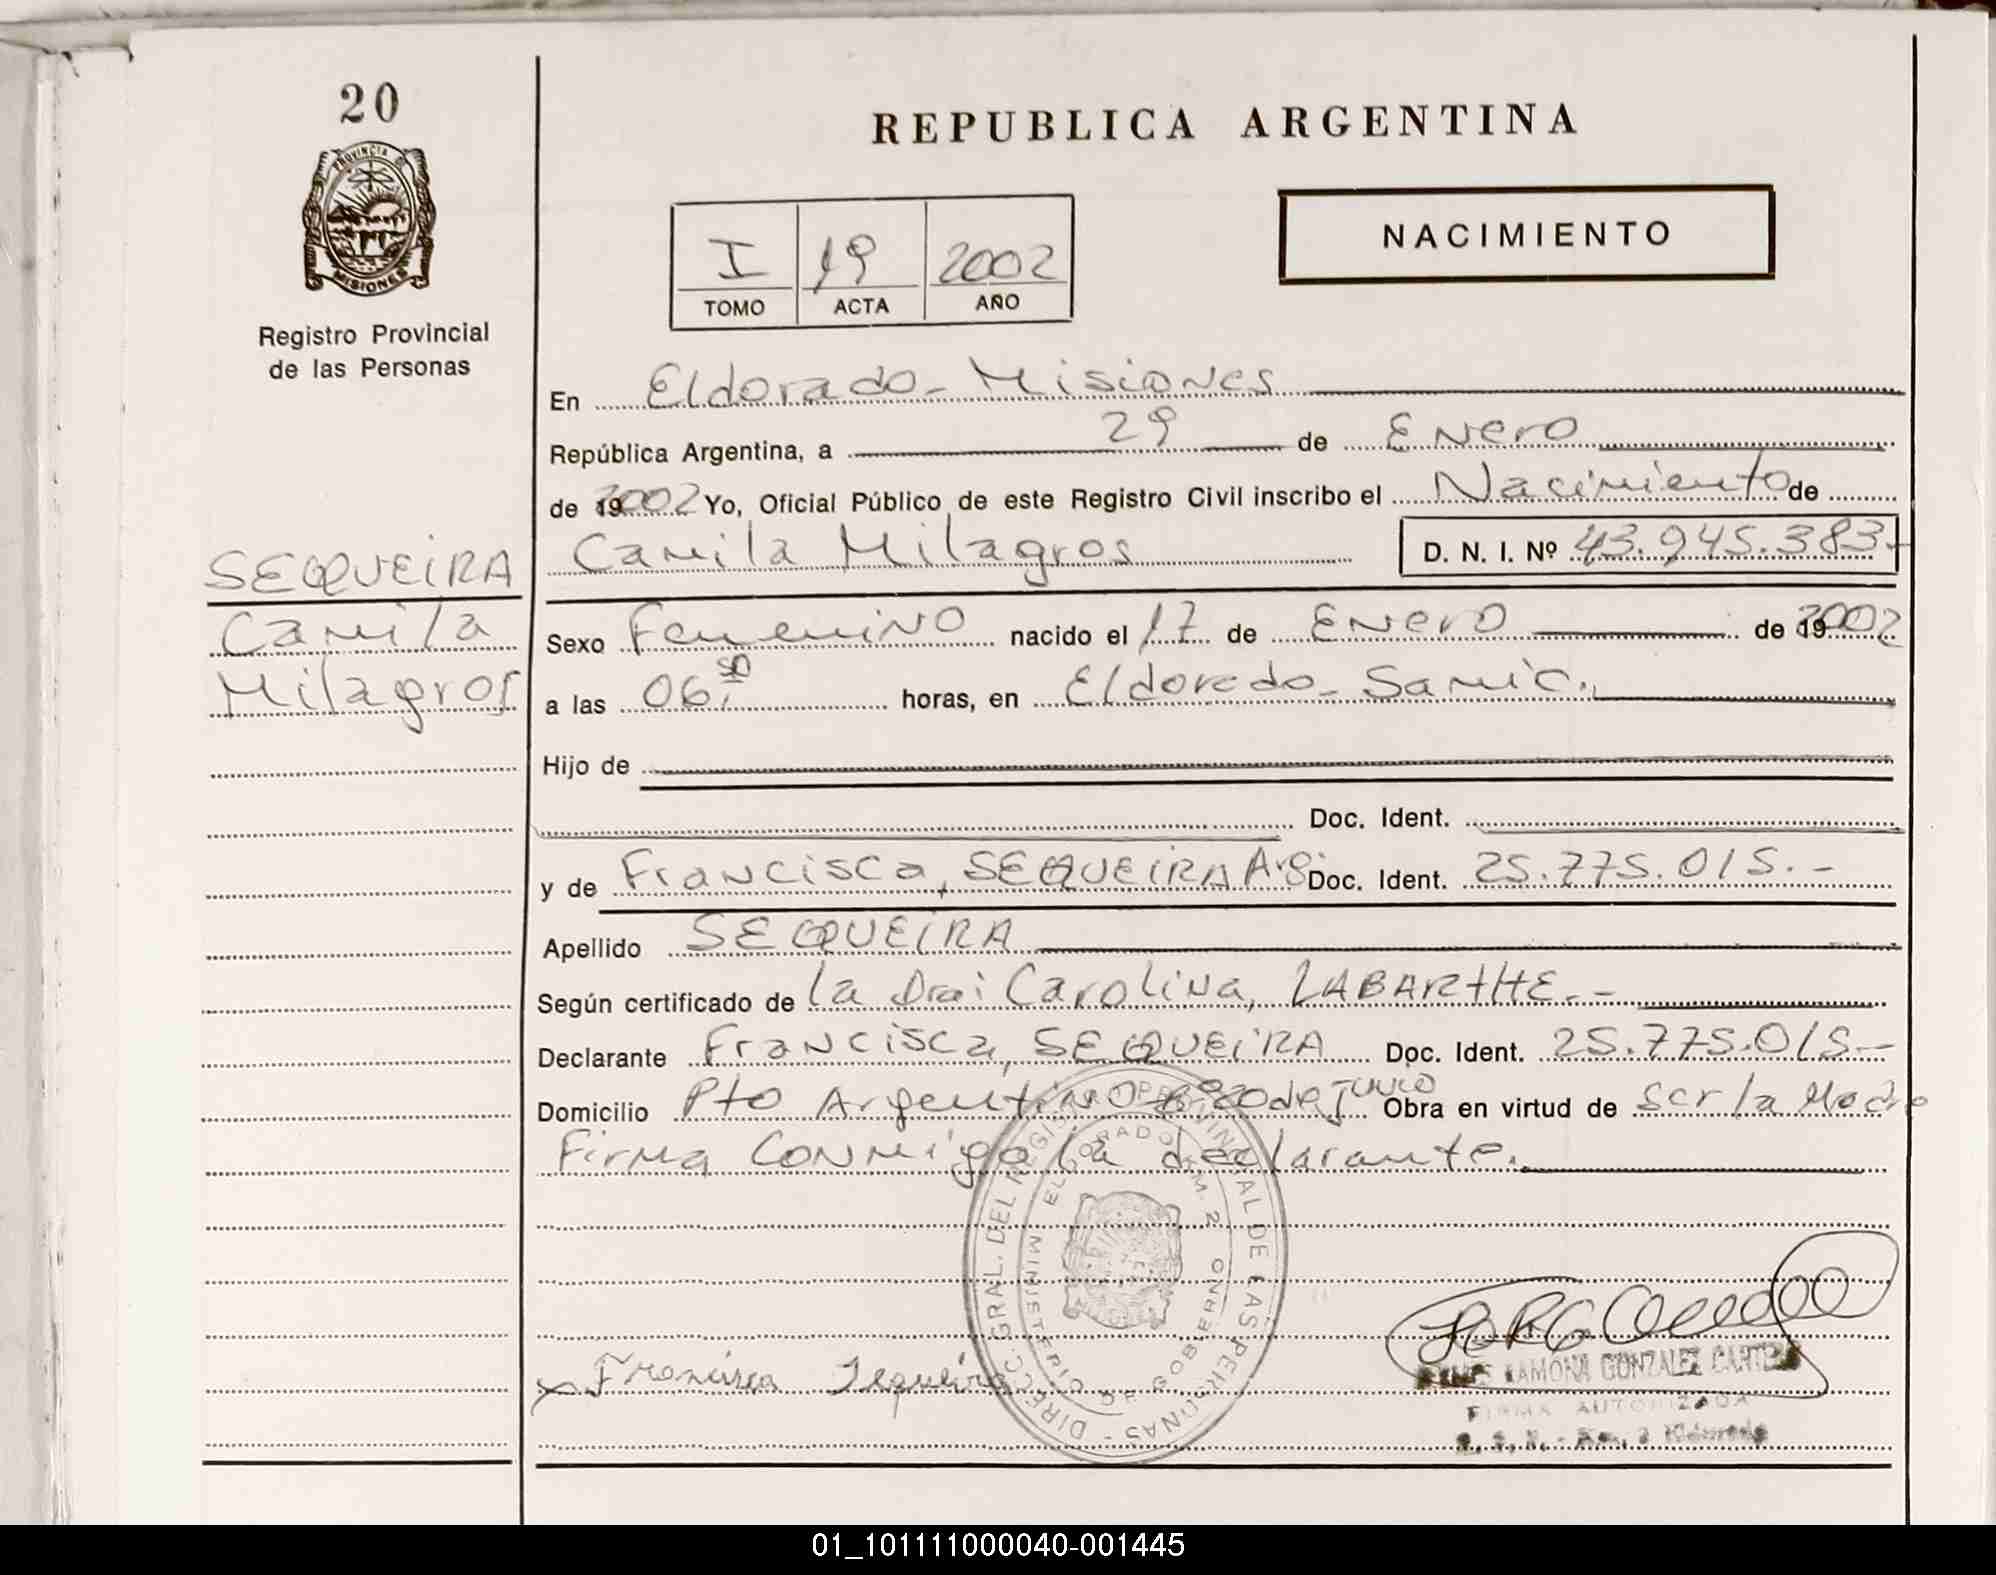 20
PROVINCIA DE
MISIONES
Registro Provincial
de las Personas
SEQUEIRA
Camila
Milagros
REPUBLICA ARGENTINA
I 19 2002
TOMO ACTA AÑO
NACIMIENTO
En Eldorado - Misiones
República Argentina, a 29 de Enero
de 2002 Yo, Oficial Público de este Registro Civil inscribo el Nacimiento de
Camila Milagros D. N. I. Nº 43.945.383.-
Sexo Femenino nacido el 17 de Enero de 2002
a las 06,50 horas, en Eldorado - Samic.
Hijo de
Doc. Ident.
y de Francisca, SEQUEIRA Arg. Doc. Ident. 25.775.015.-
Apellido SEQUEIRA
Según certificado de la Dra: Carolina, LABARTHE.-
Declarante Francisca, SEQUEIRA Doc. Ident. 25.775.015.-
Domicilio Pto Argentino 20 de Junio Obra en virtud de ser la Madre
Firma conmigo la declarante.
DIRECC. GRAL. DEL REGISTRO PROVINCIAL DE LAS PERSONAS -
MINISTERIO DE GOBIERNO
ELDORADO KM. 2
Francisca Sequeira
RAMONA GONZALEZ
FIRMA AUTORIZADA
Eldorado
01_101111000040-001445